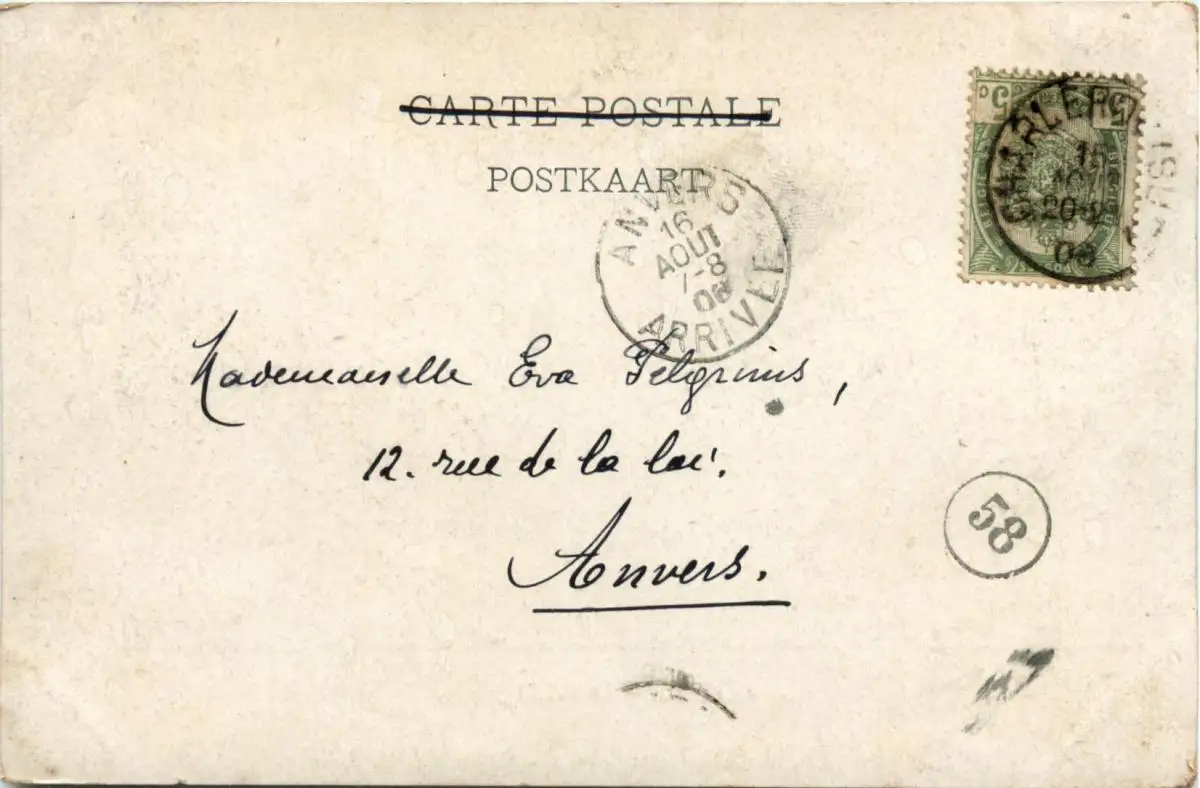 CARTE POSTALE
POSTKAART
ANVERS
16
AOUT
7-8
08
ARRIVEE
5 5
CHARLEROI
15
20-
08
Mademoiselle Eva Pelgrims,
12. rue de la loi.
58
Anvers.